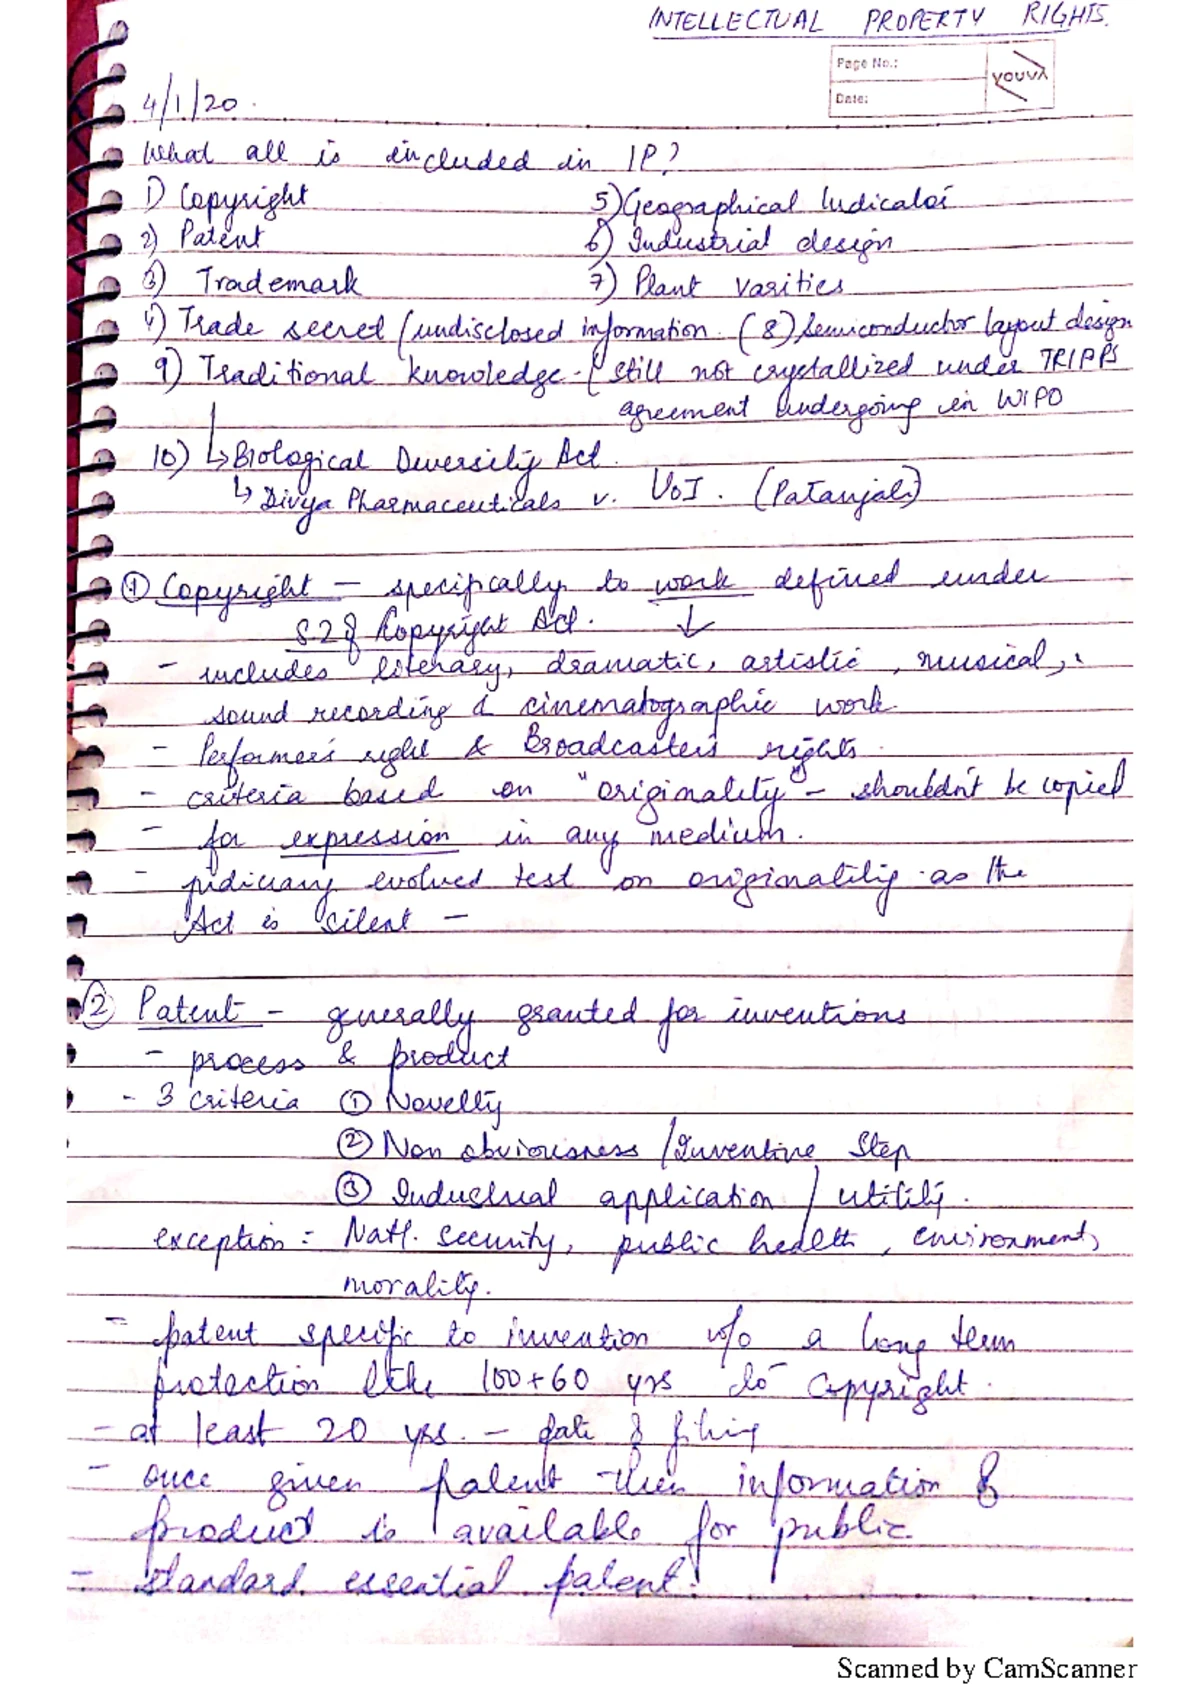 INTELLECTUAL PROPERTY RIGHTS.
Page No.:
Date:
youva
4/1/20.
What all is included in IP?
1) Copyright 5) Geographical Indicator
2) Patent 6) Industrial design
3) Trademark 7) Plant varities
4) Trade secret (undisclosed information. (8) Semiconductor layout design
9) Traditional knowledge - (still not crystallized under TRIPPS
agreement undergoing in WIPO
10) ↳ Biological Diversity Act.
↳ Divya Pharmaceuticals v. UoI. (Patanjali)
① Copyright — specifically to work defined under
S.2 of Copyright Act. ↓
- includes literary, dramatic, artistic, musical,
sound recording & cinematographic work.
- Performer's right & Broadcaster's rights.
- criteria based on "originality" - shouldn't be copied
- for expression in any medium.
- judiciary evolved test on originality as the
Act is silent -
② Patent - generally granted for inventions
- process & product
- 3 criteria ① Novelty
② Non obviousness / Inventive Step
③ Industrial application / utility.
exception: Natl. security, public health, environment,
morality.
- patent specific to invention w/o a long term
protection like 100+60 yrs to copyright.
- at least 20 yrs. - date of filing
- once given patent then information of
product is available for public
- standard essential patent.
Scanned by CamScanner